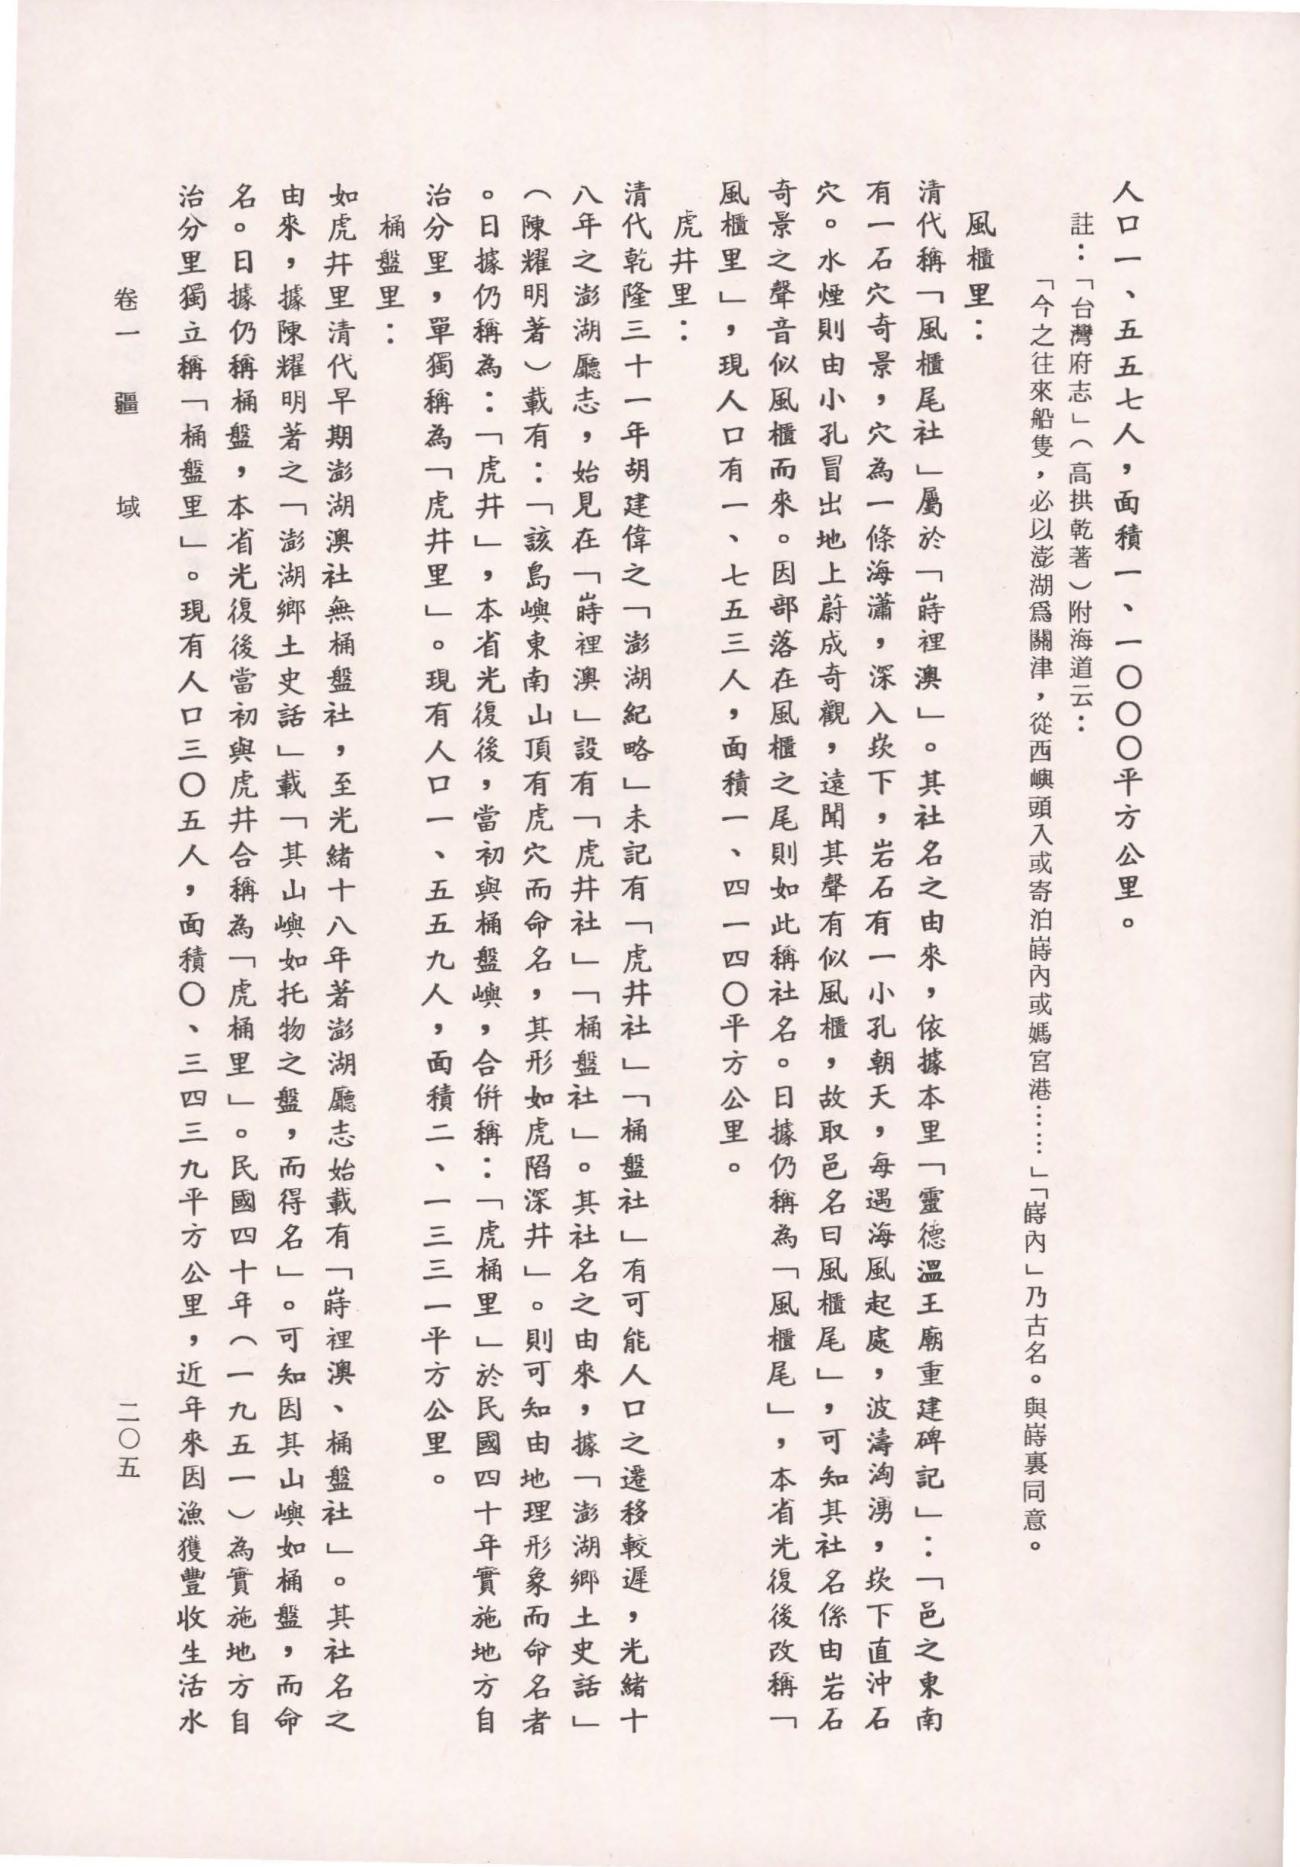 人口一、五五七人，面積一、一〇〇〇平方公里。
註：「台灣府志」（高拱乾著）附海道云：
「今之往來船隻，必以澎湖爲關津，從西嶼頭入或寄泊嵵內或媽宮港……」「嵵內」乃古名。與嵵裏同意。
風櫃里：
清代稱「風櫃尾社」屬於「嵵裡澳」。其社名之由來，依據本里「靈德溫王廟重建碑記」：「邑之東南
有一石穴奇景，穴為一條海瀟，深入崁下，岩石有一小孔朝天，每遇海風起處，波濤洶湧，崁下直沖石
穴。水煙則由小孔冒出地上蔚成奇觀，遠聞其聲有似風櫃，故取邑名曰風櫃尾」，可知其社名係由岩石
奇景之聲音似風櫃而來。因部落在風櫃之尾則如此稱社名。日據仍稱為「風櫃尾」，本省光復後改稱「
風櫃里」，現人口有一、七五三人，面積一、四一四〇平方公里。
虎井里：
清代乾隆三十一年胡建偉之「澎湖紀略」未記有「虎井社」「桶盤社」有可能人口之遷移較遲，光緒十
八年之澎湖廳志，始見在「嵵裡澳」設有「虎井社」「桶盤社」。其社名之由來，據「澎湖鄉土史話」
（陳耀明著）載有：「該島嶼東南山頂有虎穴而命名，其形如虎陷深井」。則可知由地理形象而命名者
。日據仍稱為：「虎井」，本省光復後，當初與桶盤嶼，合併稱：「虎桶里」於民國四十年實施地方自
治分里，單獨稱為「虎井里」。現有人口一、五五九人，面積二、一三三一平方公里。
桶盤里：
如虎井里清代早期澎湖澳社無桶盤社，至光緒十八年著澎湖廳志始載有「嵵裡澳、桶盤社」。其社名之
由來，據陳耀明著之「澎湖鄉土史話」載「其山嶼如托物之盤，而得名」。可知因其山嶼如桶盤，而命
名。日據仍稱桶盤，本省光復後當初與虎井合稱為「虎桶里」。民國四十年（一九五一）為實施地方自
治分里獨立稱「桶盤里」。現有人口三〇五人，面積〇、三四三九平方公里，近年來因漁獲豐收生活水
卷一 疆域 二〇五